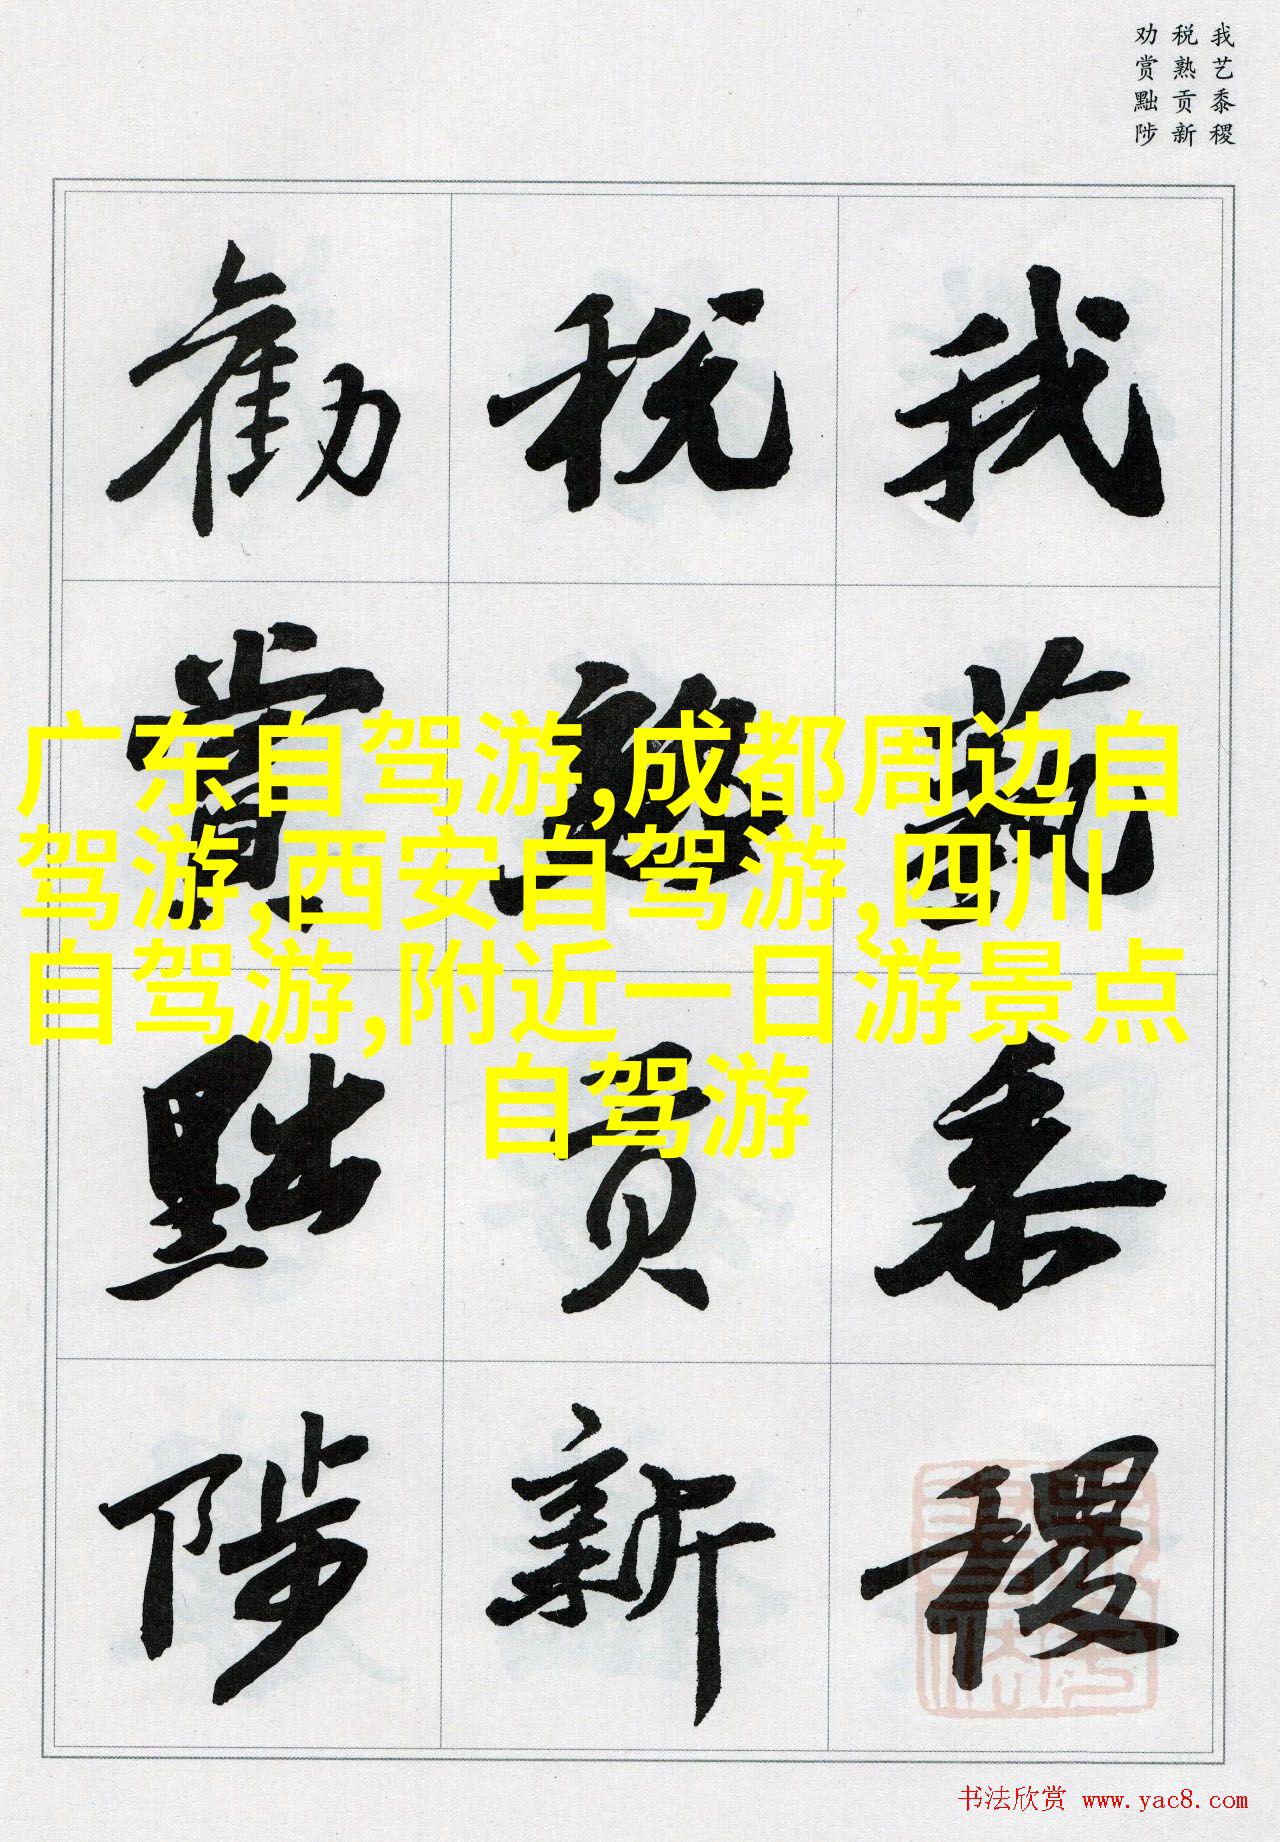 我艺黍稷
税熟贡新
劝赏黜陟
我藝黍稷
税熟貢新
勸賞黜陟
广东自驾游,成都周边自
驾游,西安自驾游,四川
自驾游,附近一日游景点
自驾游
书法欣赏 www.yac8.com